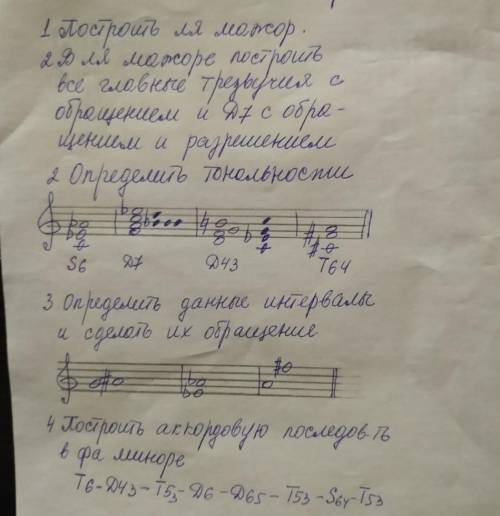 1 Построить ля мажор.
2 В ля мажоре построить
все главные трезвучия с
обращением и D7 с обра-
щением и разрешением
2 Определить тональности
S6 D7 D43 T64
3 Определить данные интервалы
и сделать их обращение
4 Построить аккордовую последов-ть
в фа миноре
T6-D43-T53-D6-D65-T53-S64-T53